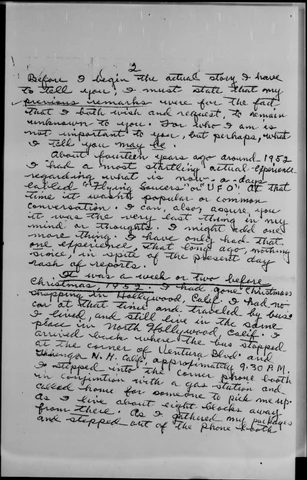 2
Before I begin the actual story I have
to tell you, I must state that my
previous remarks were for the fact
that I both wish and request, to remain
unknown to you. For who I am is
not important to you, but perhaps, what
I tell you may be.
About fourteen years ago around 1952
I had a most startling actual experience
regarding what is now-a-days
called "Flying Saucers" or "UFO". At that
time it wasn't popular or common
conversation. I can, also, assure you
it was the very last thing in my
mind or thoughts. I might add one
more thing. I have only had that
one experience, that long ago, nothing
since, in spite of the present day
rash of reports.
It was a week or two before
Christmas, 1952. I had gone Christmas
shopping in Hollywood, Calif. I had no
car at that time and traveled by bus.
I lived, and still live in the same
place in North Hollywood, Calif. I
arrived back where the bus stopped
at the corner of Ventura Blvd. and
N. H. Calif. approximately 9:30 P.M.
I stepped into the corner phone booth
in connection with a gas station and
called home for someone to pick me up.
As I live about eight blocks away
from there. As I gathered my packages
and stepped out of the phone booth